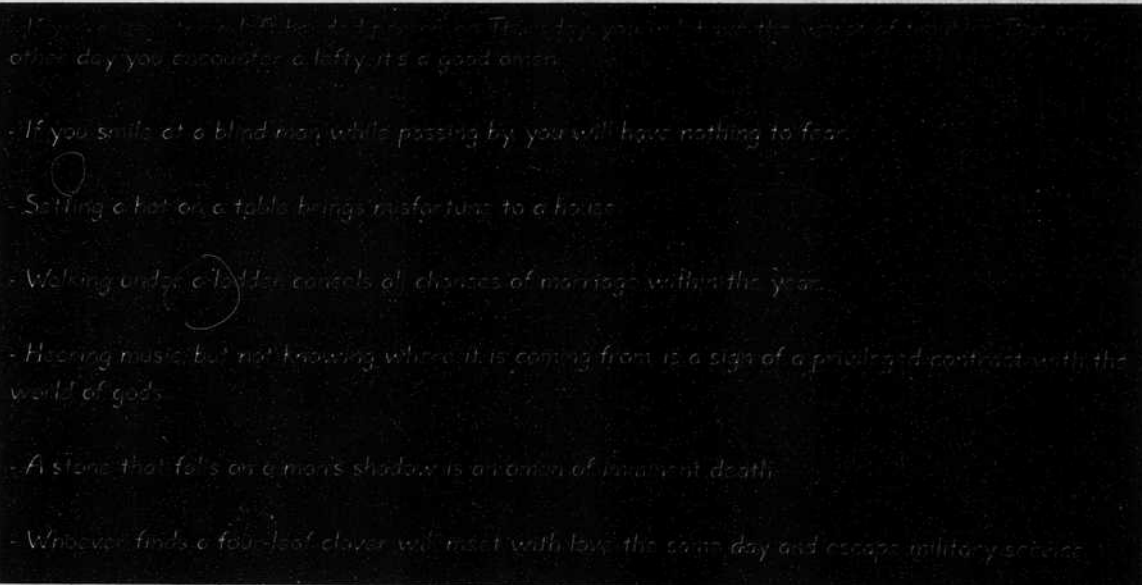 other day you encounter a lefty, it's a good omen
- If you smile at a blind man while passing by you will have nothing to fear.
- Setting a hat on a table brings misfortune to a house
- Walking under a ladder cancels all chances of marriage within the year.
- Hearing music, but not knowing where it is coming from is a sign of a privileged contract with the
world of gods
- A stone that falls on a man's shadow is an omen of imminent death
- Whoever finds a four-leaf clover will meet with love the same day and escape military service